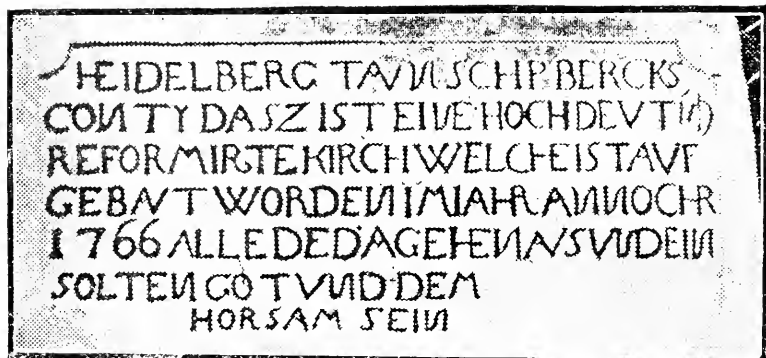 HEIDELBERG TAUNSCHIP BERCKS
COUNTY DASZ IST EINE HOCH DEVTSCH
REFORMIRTE KIRCH WELCHE IST AVF
GEBAVT WORDEN IM IAHR ANNO CHR
1766 ALLE DE DA GEHEN AVS VND EIN
SOLTEN GOT VND DEM
HORSAM SEIN